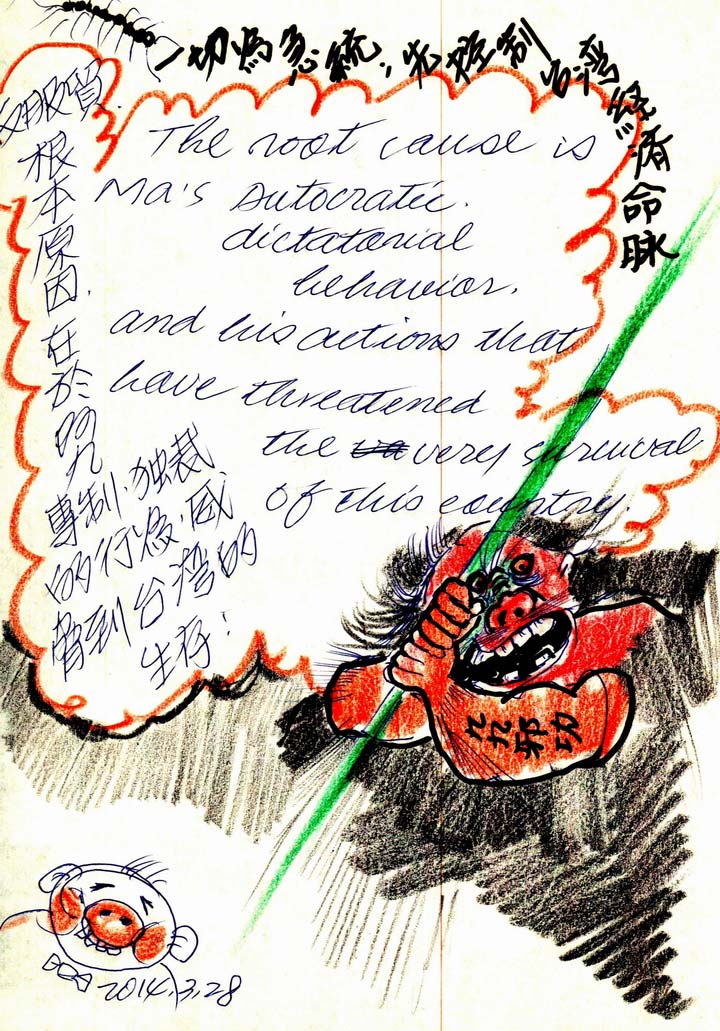 一切為急統,先控制台湾經済命脉
反服貿
根本原因,在於
專制.独裁
的行為.威
脅到台湾的
生存!
The root cause is
Ma's Autocratic.
dictatorial
behavior.
and his actions that
have threatened
the very survival
of this country
九九邪功
2014.3.28